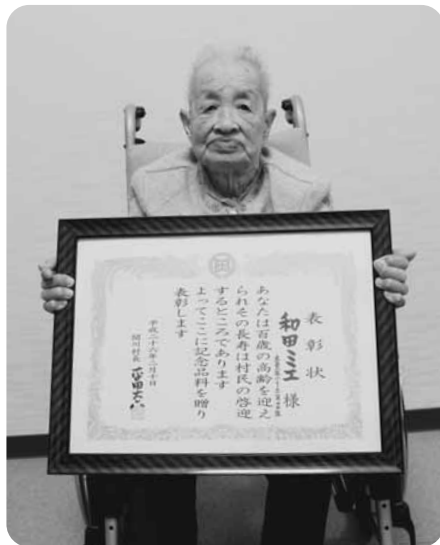 表彰状
和田ミエ様
あなたは百歳の高齢を迎え
られその長寿は村民の啓迎
するところであります
よってここに記念品料を贈り
表彰します
平成二十六年二月十日
関川村長 平田大八